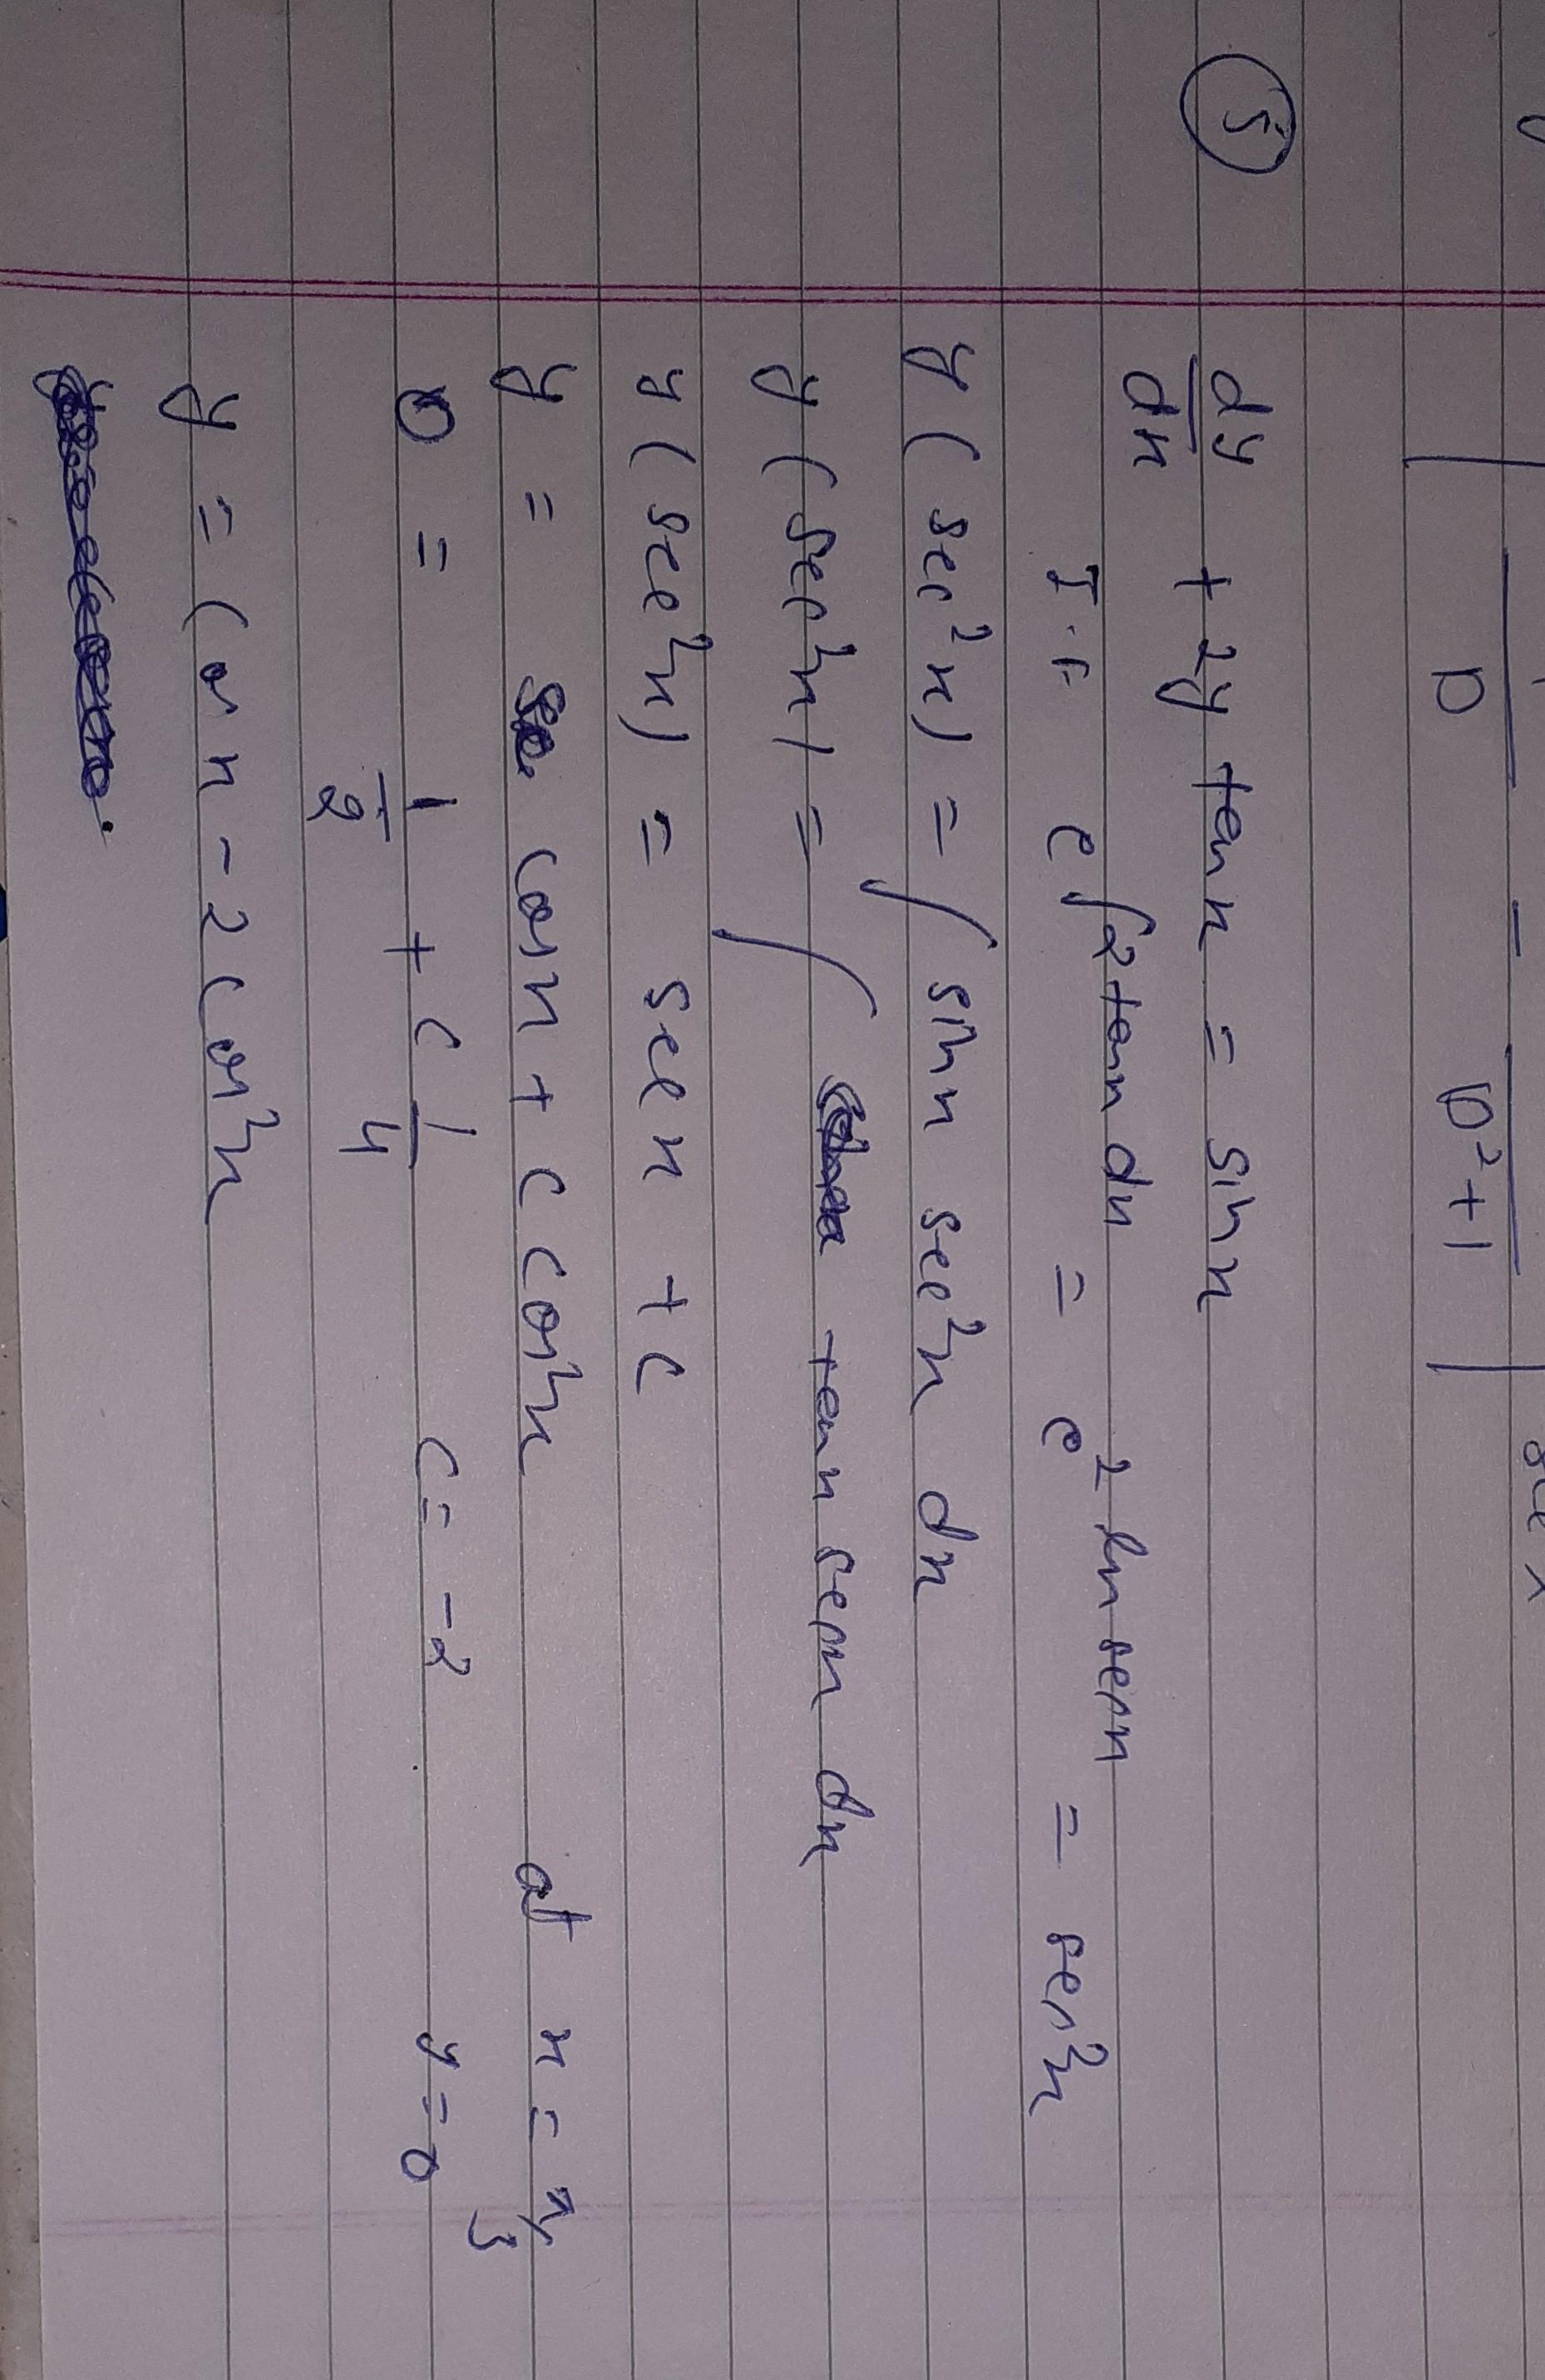 D D²+1
⑤ dy/dx + 2y tan x = sin x
I.F e^∫2 tan x dx = e^2 ln sec x = sec²x
y (sec²x) = ∫ sin x sec²x dx
y (sec²x) = ∫ tan x sec x dx
y (sec²x) = sec x + c
y = cos x + c cos²x at x = π/3
0 = 1/2 + c 1/4 c = -2 y = 0
y = cos x - 2 cos²x